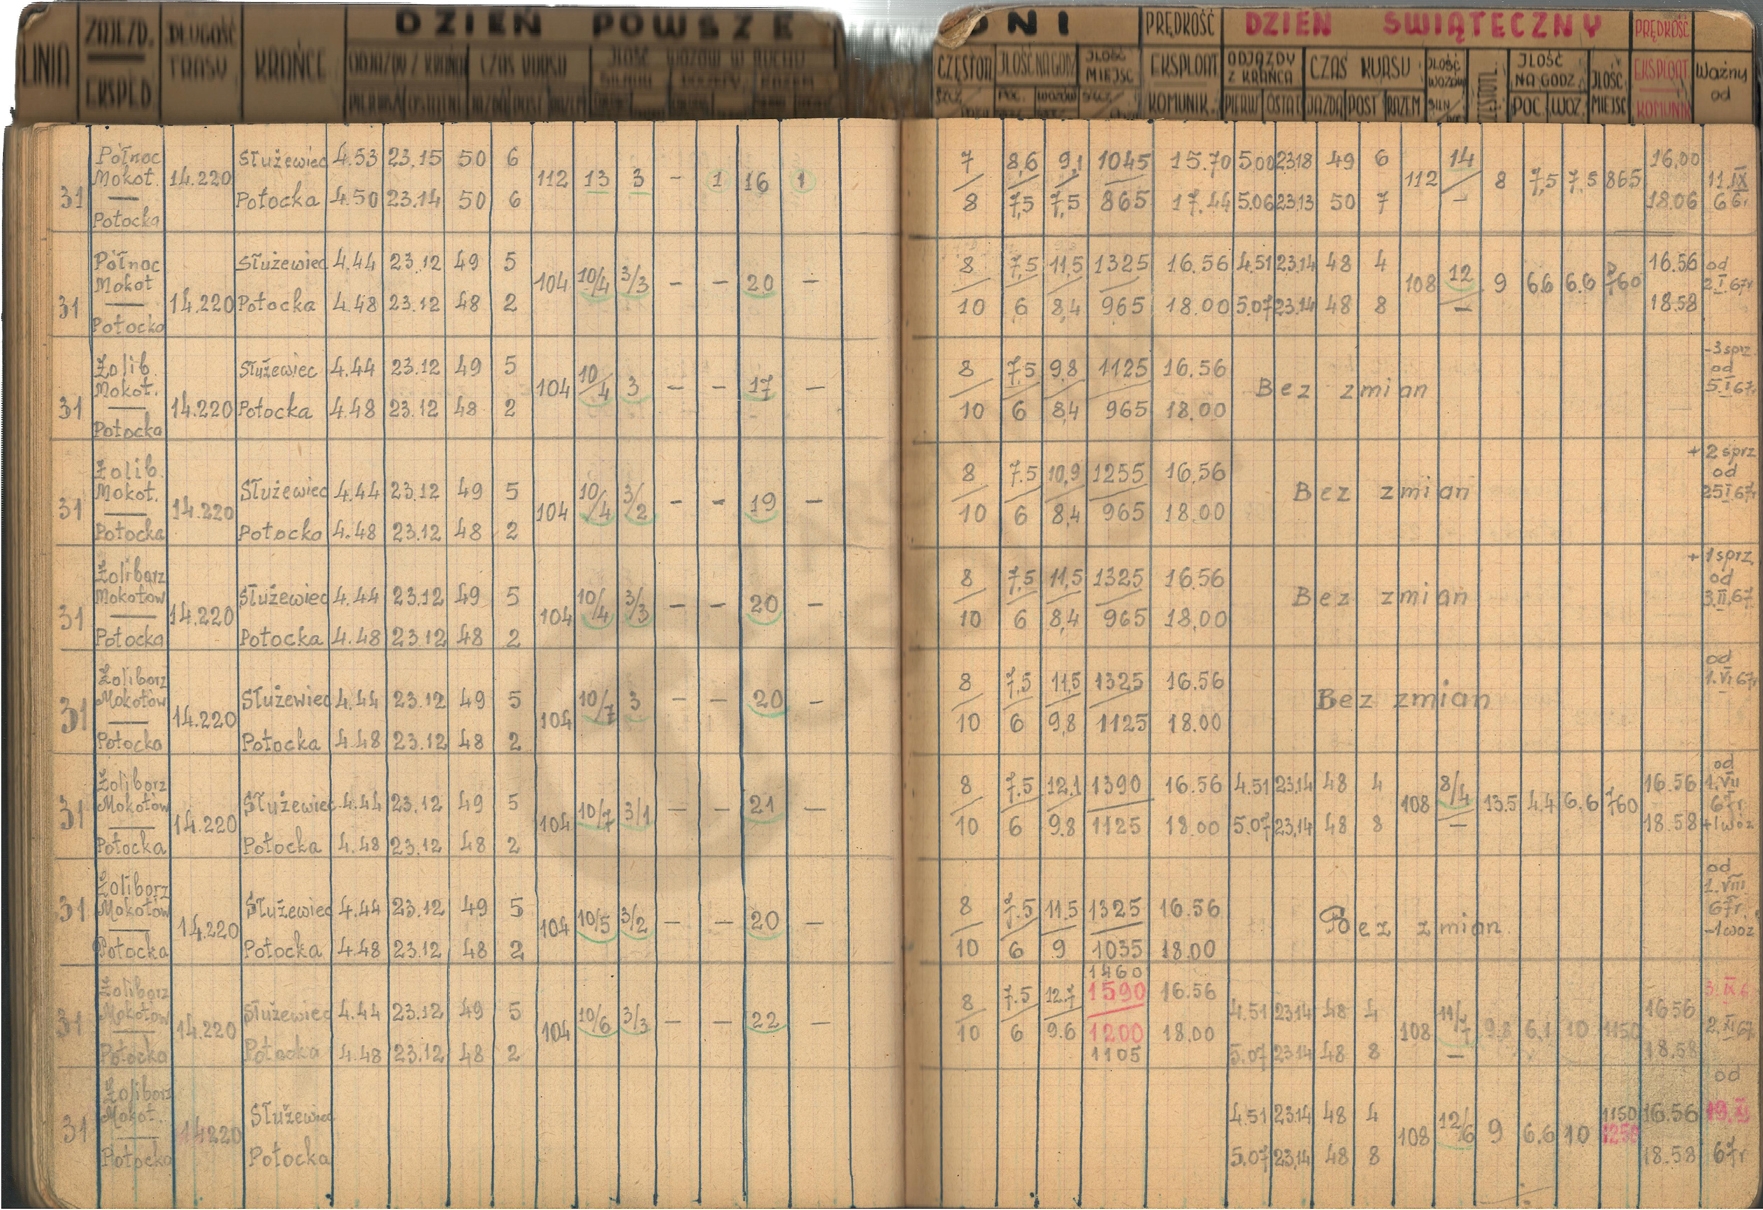 DZIEŃ POWSZE DNI PRĘDKOŚĆ DZIEŃ ŚWIĄTECZNY PRĘDKOŚĆ
LINIA ZAJEZD. EKSPED. DŁUGOŚĆ TRASY KRAŃCE ODJAZDY Z KRAŃCA CZAS KURSU
PIERWSZY OSTATNI JAZDA POST RAZEM
CZĘSTOTL ILOŚĆ NA GODZ ILOŚĆ MIEJSC EKSPLOAT. ODJAZDY Z KRAŃCA CZAS KURSU ILOŚĆ WOZÓW ILOŚĆ NA GODZ ILOŚĆ MIEJSC EKSPLOAT. Ważny od
POC. WOZÓW KOMUNIK. PIERW OSTAT JAZDA POST RAZEM POC. WOZ. KOMUNIK
31 Północ Mokot. — Potocka 14.220
Służewiec 4.53 23.15 50 6 112 13 3 – 1 16 1 7 8,6 9,1 1045 15.70 5.00 23.18 49 6 112 14 / – 8 7,5 7,5 865 16.00 11.IX
Potocka 4.50 23.14 50 6 8 7,5 7,5 865 17.44 5.06 23.13 50 7 18.06 66r.
31 Północ Mokot — Potocka 14.220
Służewiec 4.44 23.12 49 5 104 10/4 3/3 – – 20 – 8 7,5 11,5 1325 16.56 4.51 23.14 48 4 108 12 / – 9 6.6 6.6 760 16.56 od
Potocka 4.48 23.12 48 2 10 6 8,4 965 18.00 5.07 23.14 48 8 18.58 2.I.67r
31 Żolib. Mokot. — Potocka 14.220
Służewiec 4.44 23.12 49 5 104 10/4 3 – – 17 – 8 7,5 9,8 1125 16.56 Bez zmian -3 sprz od
Potocka 4.48 23.12 48 2 10 6 8,4 965 18.00 5.I.67r
31 Żolib. Mokot. — Potocka 14.220
Służewiec 4.44 23.12 49 5 104 10/4 3/2 – – 19 – 8 7.5 10,9 1255 16.56 Bez zmian + 2 sprz od
Potocka 4.48 23.12 48 2 10 6 8,4 965 18.00 25.I.67r
31 Żoliborz Mokotów — Potocka 14.220
Służewiec 4.44 23.12 49 5 104 10/4 3/3 – – 20 – 8 7,5 11,5 1325 16.56 Bez zmian + 1 sprz od
Potocka 4.48 23.12 48 2 10 6 8,4 965 18.00 3.II.67r
31 Żoliborz Mokotów — Potocka 14.220
Służewiec 4.44 23.12 49 5 104 10/7 3 – – 20 – 8 7,5 11,5 1325 16.56 Bez zmian od
Potocka 4.48 23.12 48 2 10 6 9,8 1125 18.00 1.VI.67r
31 Żoliborz Mokotów — Potocka 14.220
Służewiec 4.44 23.12 49 5 104 10/7 3/1 – – 21 – 8 7.5 12,1 1390 16.56 4.51 23.14 48 4 108 8/4 – 13.5 4,4 6,6 760 16.56 od 1.VII
Potocka 4.48 23.12 48 2 10 6 9.8 1125 18.00 5.07 23.14 48 8 18.58 67r +1 wóz
31 Żoliborz Mokotów — Potocka 14.220
Służewiec 4.44 23.12 49 5 104 10/5 3/2 – – 20 – 8 7.5 11.5 1325 16.56 Bez zmian. od 1.VIII
Potocka 4.48 23.12 48 2 10 6 9 1035 18.00 67r. -1 wóz
31 Żoliborz Mokotów — Potocka 14.220
1460
Służewiec 4.44 23.12 49 5 104 10/6 3/3 – – 22 – 8 7.5 12.7 1590 16.56 4.51 23.14 48 4 108 11/7 – 9.8 6,1 10 1150 16.56
Potocka 4.48 23.12 48 2 10 6 9.6 1200 18.00 5.07 23.14 48 8 18.58 2.XI.67r
1105
31 Żoliborz Mokot. — Potocka 14220
Służewiec 4.51 23.14 48 4 108 12/6 9 6.6 10 1150 1250 16.56 od 19.XI
Potocka 5.07 23.14 48 8 18.58 67r